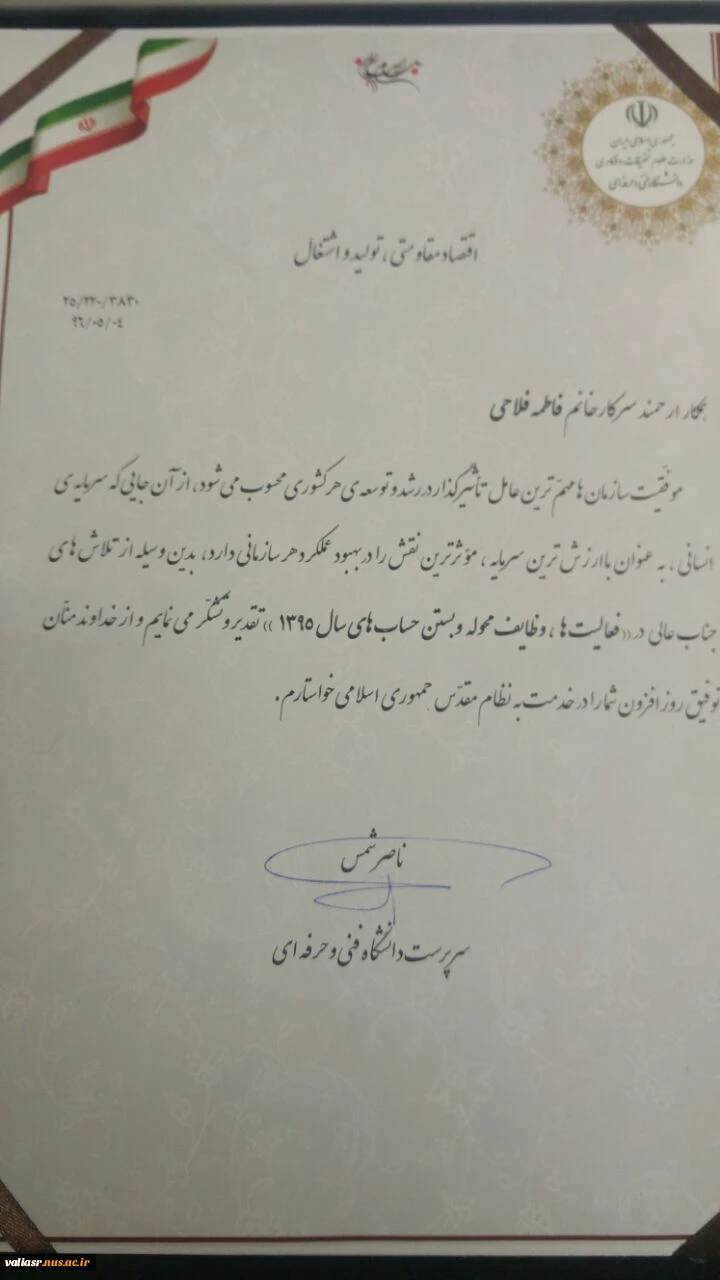 جمهوری اسلامی ایران
وزارت علوم تحقیقات و فناوری
دانشگاه فنی و حرفه ای
اقتصاد مقاومتی ، تولید و اشتغال
۲۵/۲۲۰/۳۸۳۰
۹۶/۰۵/۰۴
همکار ارجمند سرکار خانم فاطمه فلاحی
موفقیّت سازمان ها مهمّ ترین عامل تأثیرگذار در رشد و توسعه ی هر کشوری محسوب می شود، از آن جایی که سرمایه ی
انسانی ، به عنوان با ارزش ترین سرمایه ، مؤثرترین نقش را در بهبود عملکرد هر سازمانی دارد، بدین وسیله از تلاش های
جناب عالی در «فعالیت ها ، وظایف محوله و بستن حساب های سال ۱۳۹۵ » تقدیر و تشکّر می نمایم و از خداوند منّان
توفیق روز افزون شما را در خدمت به نظام مقدّس جمهوری اسلامی خواستارم .
ناصر شمس
سرپرست دانشگاه فنی و حرفه ای
valiasr.nus.ac.ir